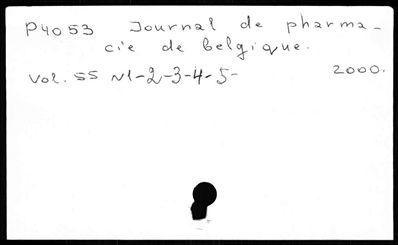 P4053 Journal de pharma-
cie de belgique.
Vol. 55 N1-2-3-4-5- 2000.